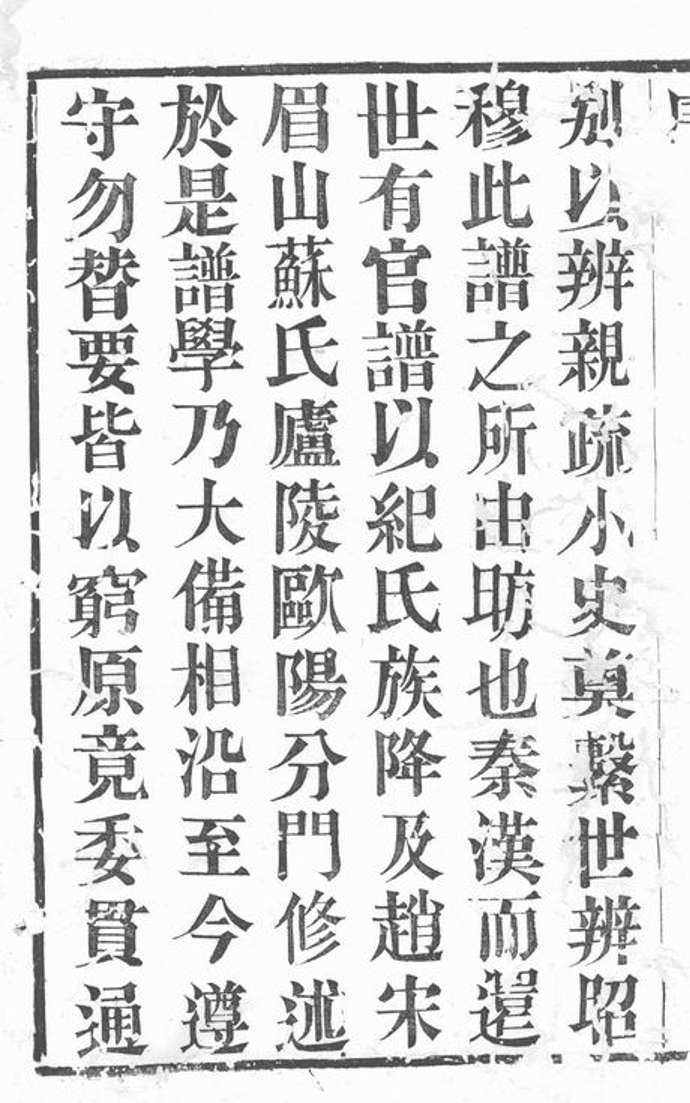 别以辨親疏小史奠繫世辨昭
穆此譜之所由昉也秦漢而還
世有官譜以紀氏族降及趙宋
眉山蘇氏廬陵歐陽分門修述
於是譜學乃大備相沿至今遵
守勿替要皆以窮原竟委貫通